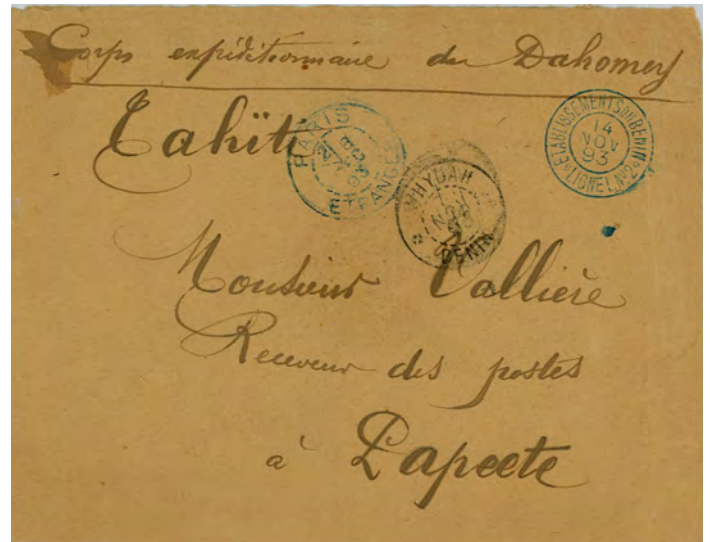 Corps expéditionnaire du Dahomey
Tahïti
PARIS
ETRANGER
WHYDAH
NOV
BENIN
ETABLISSEMENTS DU BENIN
14
NOV
93
LIGNE L. Nº2
Monsieur Vallière
Receveur des postes
à Papeete